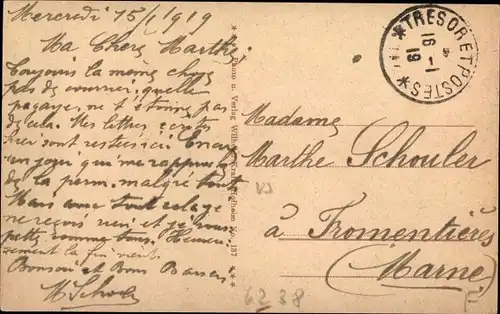 Mercredi 15/1 1919
Ma Chère Marthe
Toujours la même chose
pas de courrier, quelle
pagaye, ne t'étonne pas
de cela. Mes lettres
hier sont restées ici. Encore
un jour qui me rapproche
de la perm. malgré tout
Mais avec tout cela je
ne reçois rien et je
comme tous. Heureu-
sement la fin vient
Bonsoir et Bons Baisers
M Schouler
Photo u. Verlag No. 157
TRESOR ET POSTES
16 - 1
19
Madame
Marthe Schouler
à Fromentières
(Marne)
6238